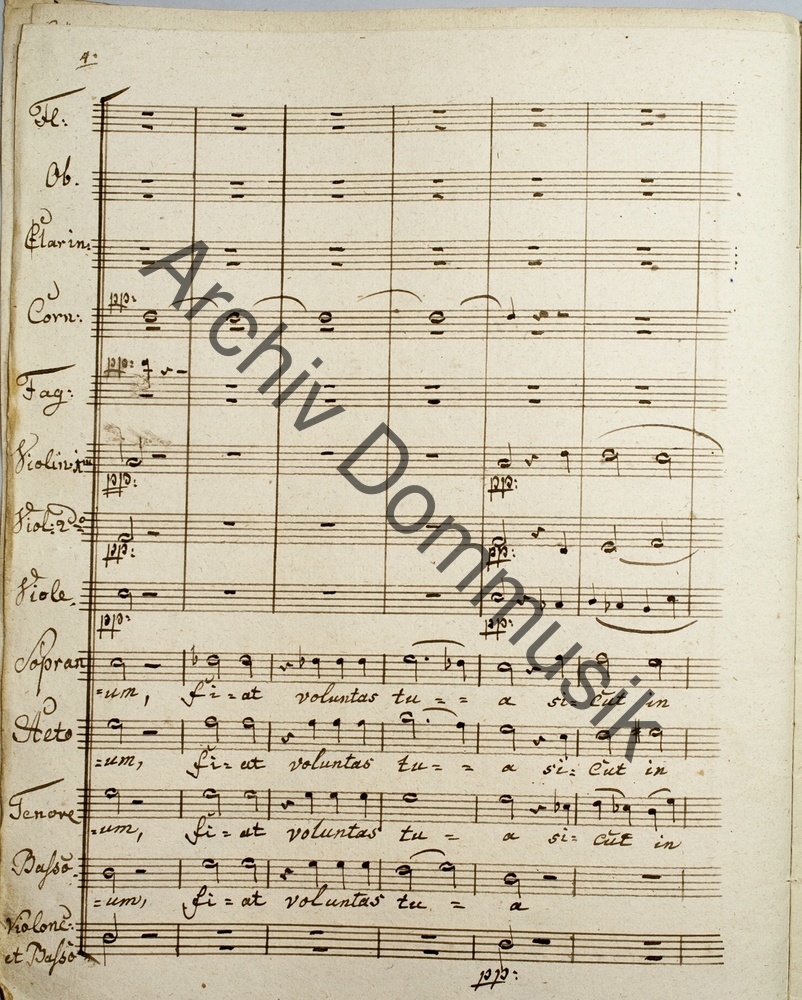 4.
Fl:
Ob.
Clarin:
Corn: pp:
pp:
Fag:
Violin 1mo
pp: pp:
Viol: 2do
pp: pp:
Viole.
pp: pp:
Sopran
=um, fi=at voluntas tu = = a si=cut in
Alto
=um, fi=at voluntas tu = = a si=cut in
Tenore
=um, fi=at voluntas tu = a si=cut in
Basso.
=um, fi=at voluntas tu = a
Violonc:
et Basso
pp:
Archiv Dommusik